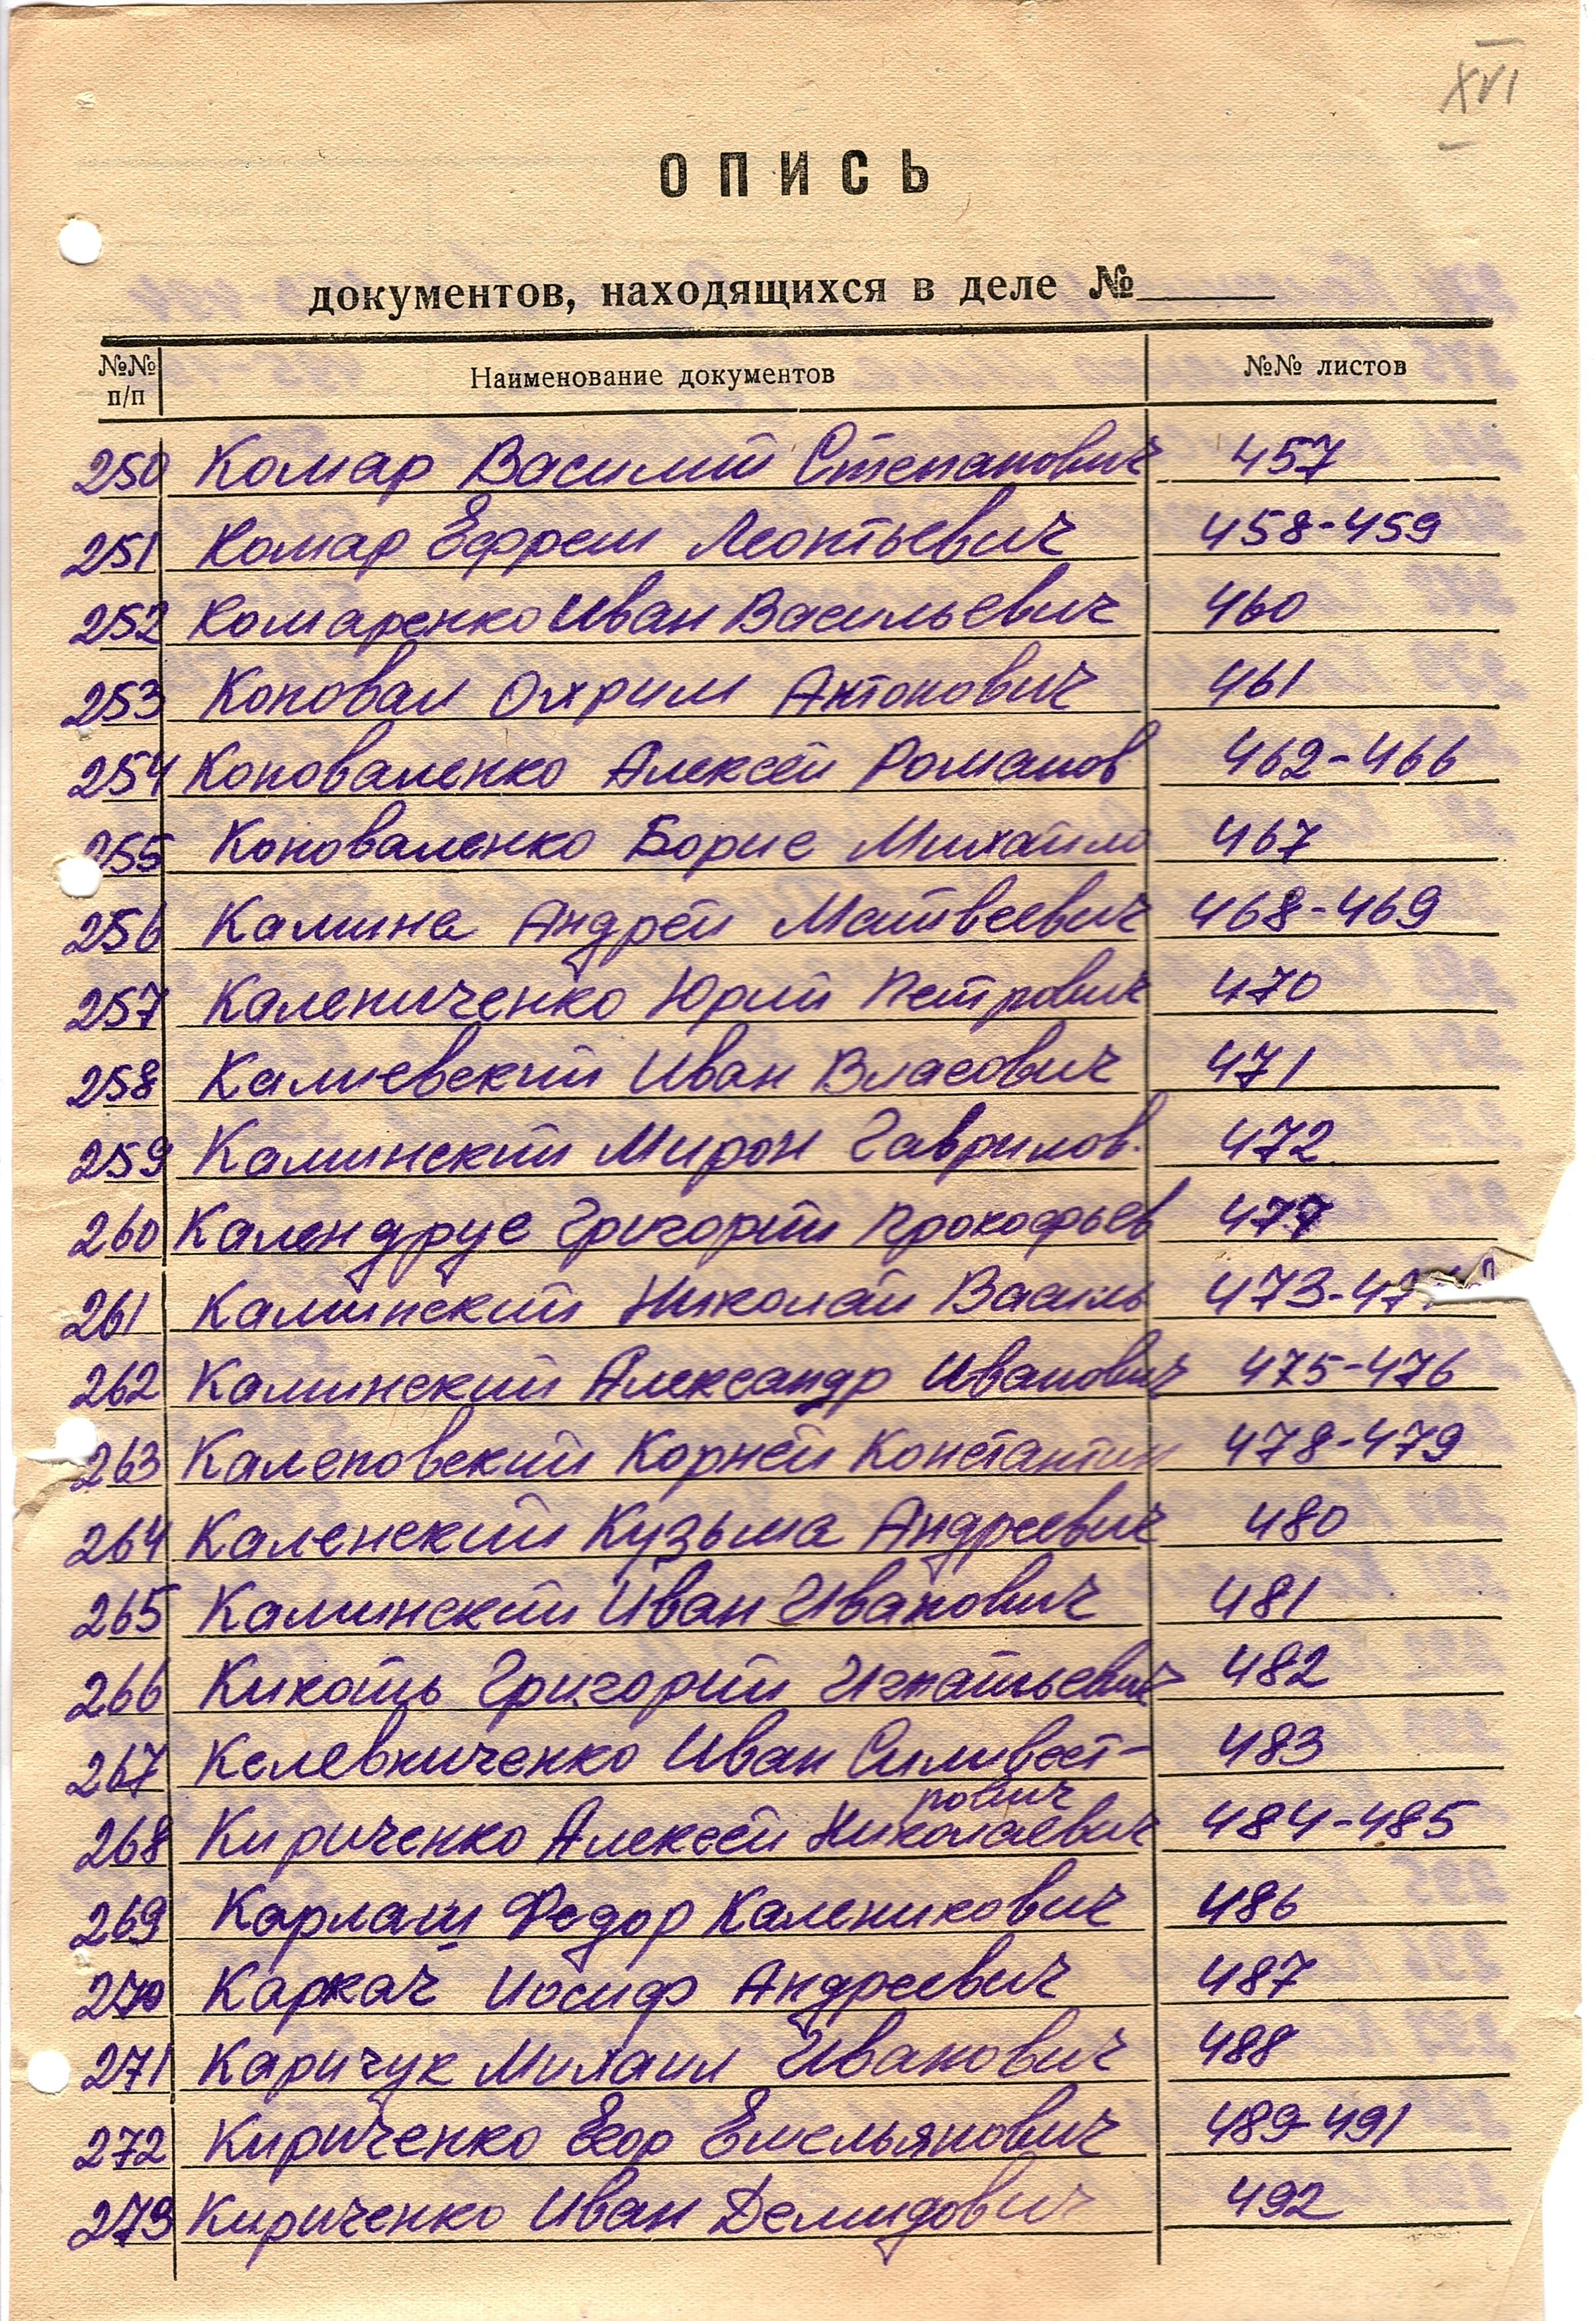 XVI
ОПИСЬ
документов, находящихся в деле №
№№ п/п Наименование документов №№ листов
250 Комар Василий Степанович 457
251 Комар Ефрем Леонтьевич 458-459
252 Комаренко Иван Васильевич 460
253 Коновал Охрим Антонович 461
254 Коноваленко Алексей Романов 462-466
255 Коноваленко Борис Михайло 467
256 Калина Андрей Матвеевич 468-469
257 Калениченко Юрий Петрович 470
258 Калиевский Иван Власович 471
259 Калинский Мирон Гаврилов. 472
260 Календрус Григорий Прокофьев 477
261 Калинский Николай Василь 473-47
262 Калинский Александр Иванович 475-476
263 Калеповский Корней Константин 478-479
264 Каленский Кузьма Андреевич 480
265 Калинский Иван Иванович 481
266 Кикоть Григорий Игнатьевич 482
267 Келевниченко Иван Силивест-
рович
483
268 Кириченко Алексей Николаевич 484-485
269 Карлаш Федор Каленикович 486
270 Каркач Иосиф Андреевич 487
271 Каричук Михаил Иванович 488
272 Кириченко Егор Емельянович 489-491
273 Кириченко Иван Демидович 492